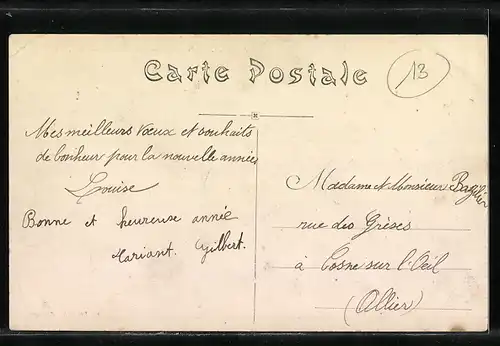 Carte Postale
13
Mes meilleurs vœux et souhaits
de bonheur pour la nouvelle année
Louise
Bonne et heureuse année
Gilbert.
Madame et Monsieur
rue des Grèses
à Cosne sur l'Œil
(Allier)